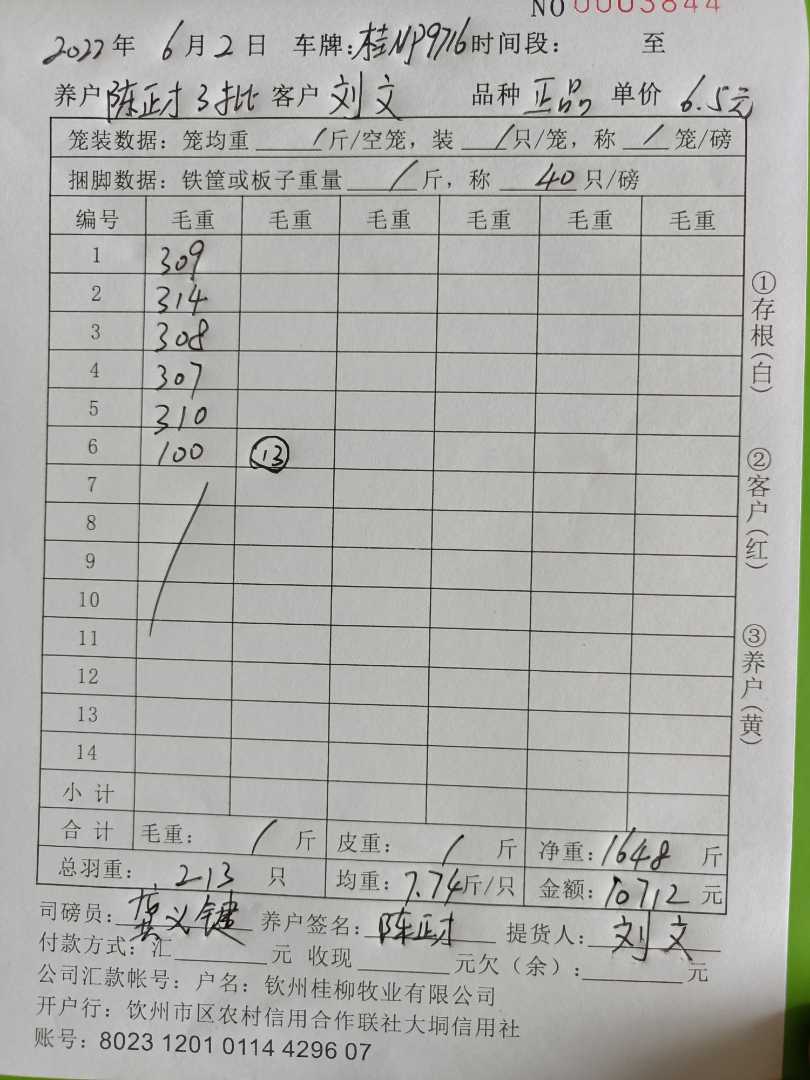 NO 0003844
2022年 6月2日 车牌:桂NP9716 时间段: 至
养户 陈正才3批 客户 刘文 品种 正品 单价 6.5元
笼装数据: 笼均重 / 斤/空笼, 装 / 只/笼, 称 / 笼/磅
捆脚数据: 铁筐或板子重量 / 斤, 称 40 只/磅
编号 毛重 毛重 毛重 毛重 毛重 毛重
1 309
2 314
3 308
4 307
5 310
6 100 13
7
8
9
10
11
12
13
14
小计
合计 毛重: / 斤 皮重: / 斤 净重: 1648 斤
总羽重: 213 只 均重: 7.74斤/只 金额: 10712 元
司磅员: 龚义键 养户签名: 陈正才 提货人: 刘文
付款方式: 汇 元 收现 元欠(余): 元
公司汇款帐号: 户名: 钦州桂柳牧业有限公司
开户行: 钦州市区农村信用合作联社大垌信用社
账号: 8023 1201 0114 4296 07
①存根(白)
②客户(红)
③养户(黄)